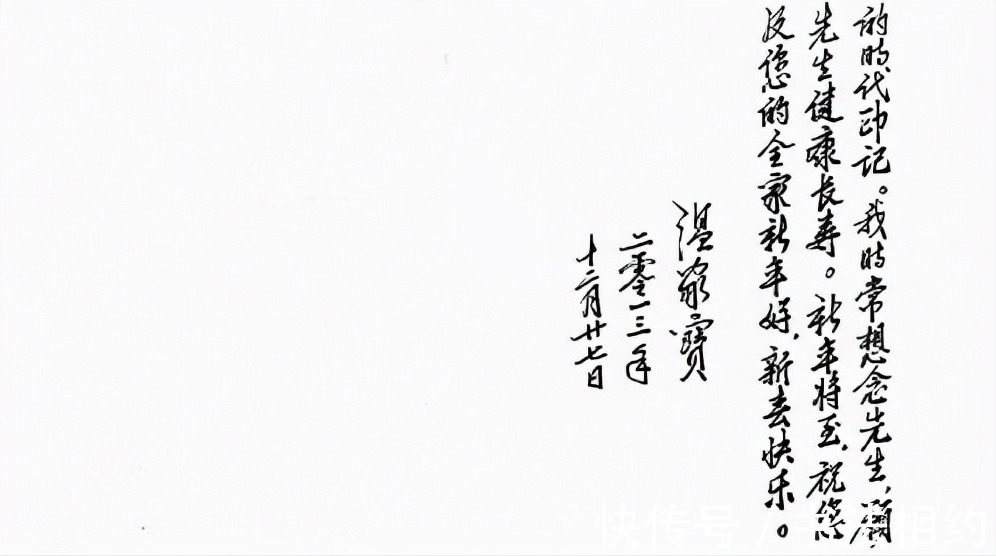 的時代印记。我时常想念先生，願
先生健康长寿。新年将至，祝您
及您的全家新年好，新春快乐。
温家寶
二零一三年
十二月廿七日
快传号 /
相约